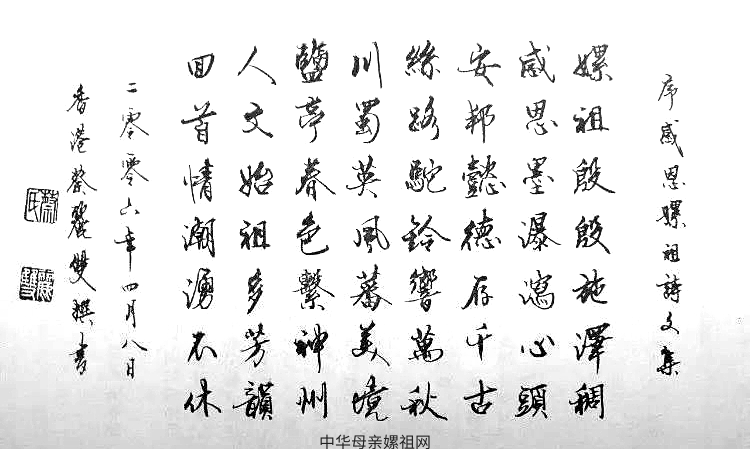 序感恩嫘祖詩文集
嫘祖殷殷施澤稠
感恩墨瀑瀉心頭
安邦懿德存千古
絲路駝鈴響萬秋
川蜀英風蕃美境
鹽亭春色繫神州
人文始祖多芳韻
回首情潮湧不休
二零零六年四月八日
香港蔡麗雙撰書
蔡氏
麗雙
中华母亲嫘祖网